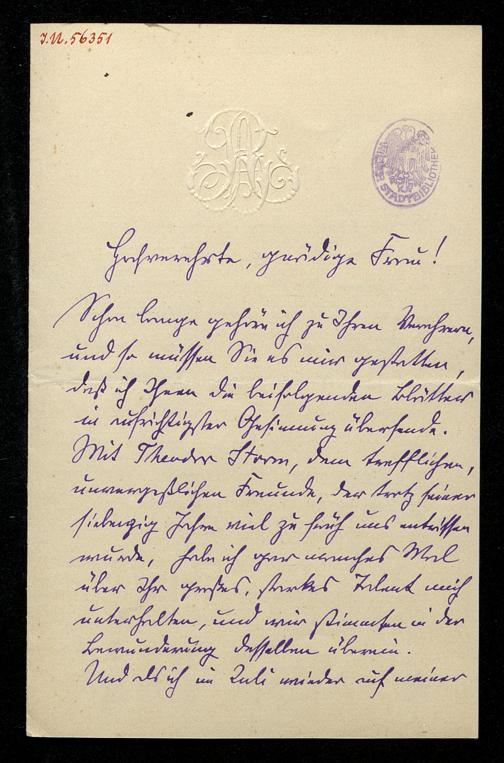 I.N. 56351
WIENER STADTBIBLIOTHEK
Hochverehrte, gnädige Frau!
Schon lange gehöre ich zu Ihren Verehrern,
und so müssen Sie es mir gestatten,
daß ich Ihnen die beifolgenden Blätter
in aufrichtigster Gesinnung übersende.
Mit Theodor Storm, dem trefflichen,
unvergeßlichen Freunde, der trotz seiner
siebenzig Jahre viel zu früh uns entrissen
wurde, habe ich gar manches Mal
über Ihr großes, starkes Talent mich
unterhalten, und wir stimmten in der
Bewunderung desselben überein.
Und als ich im Juli wieder auf meiner